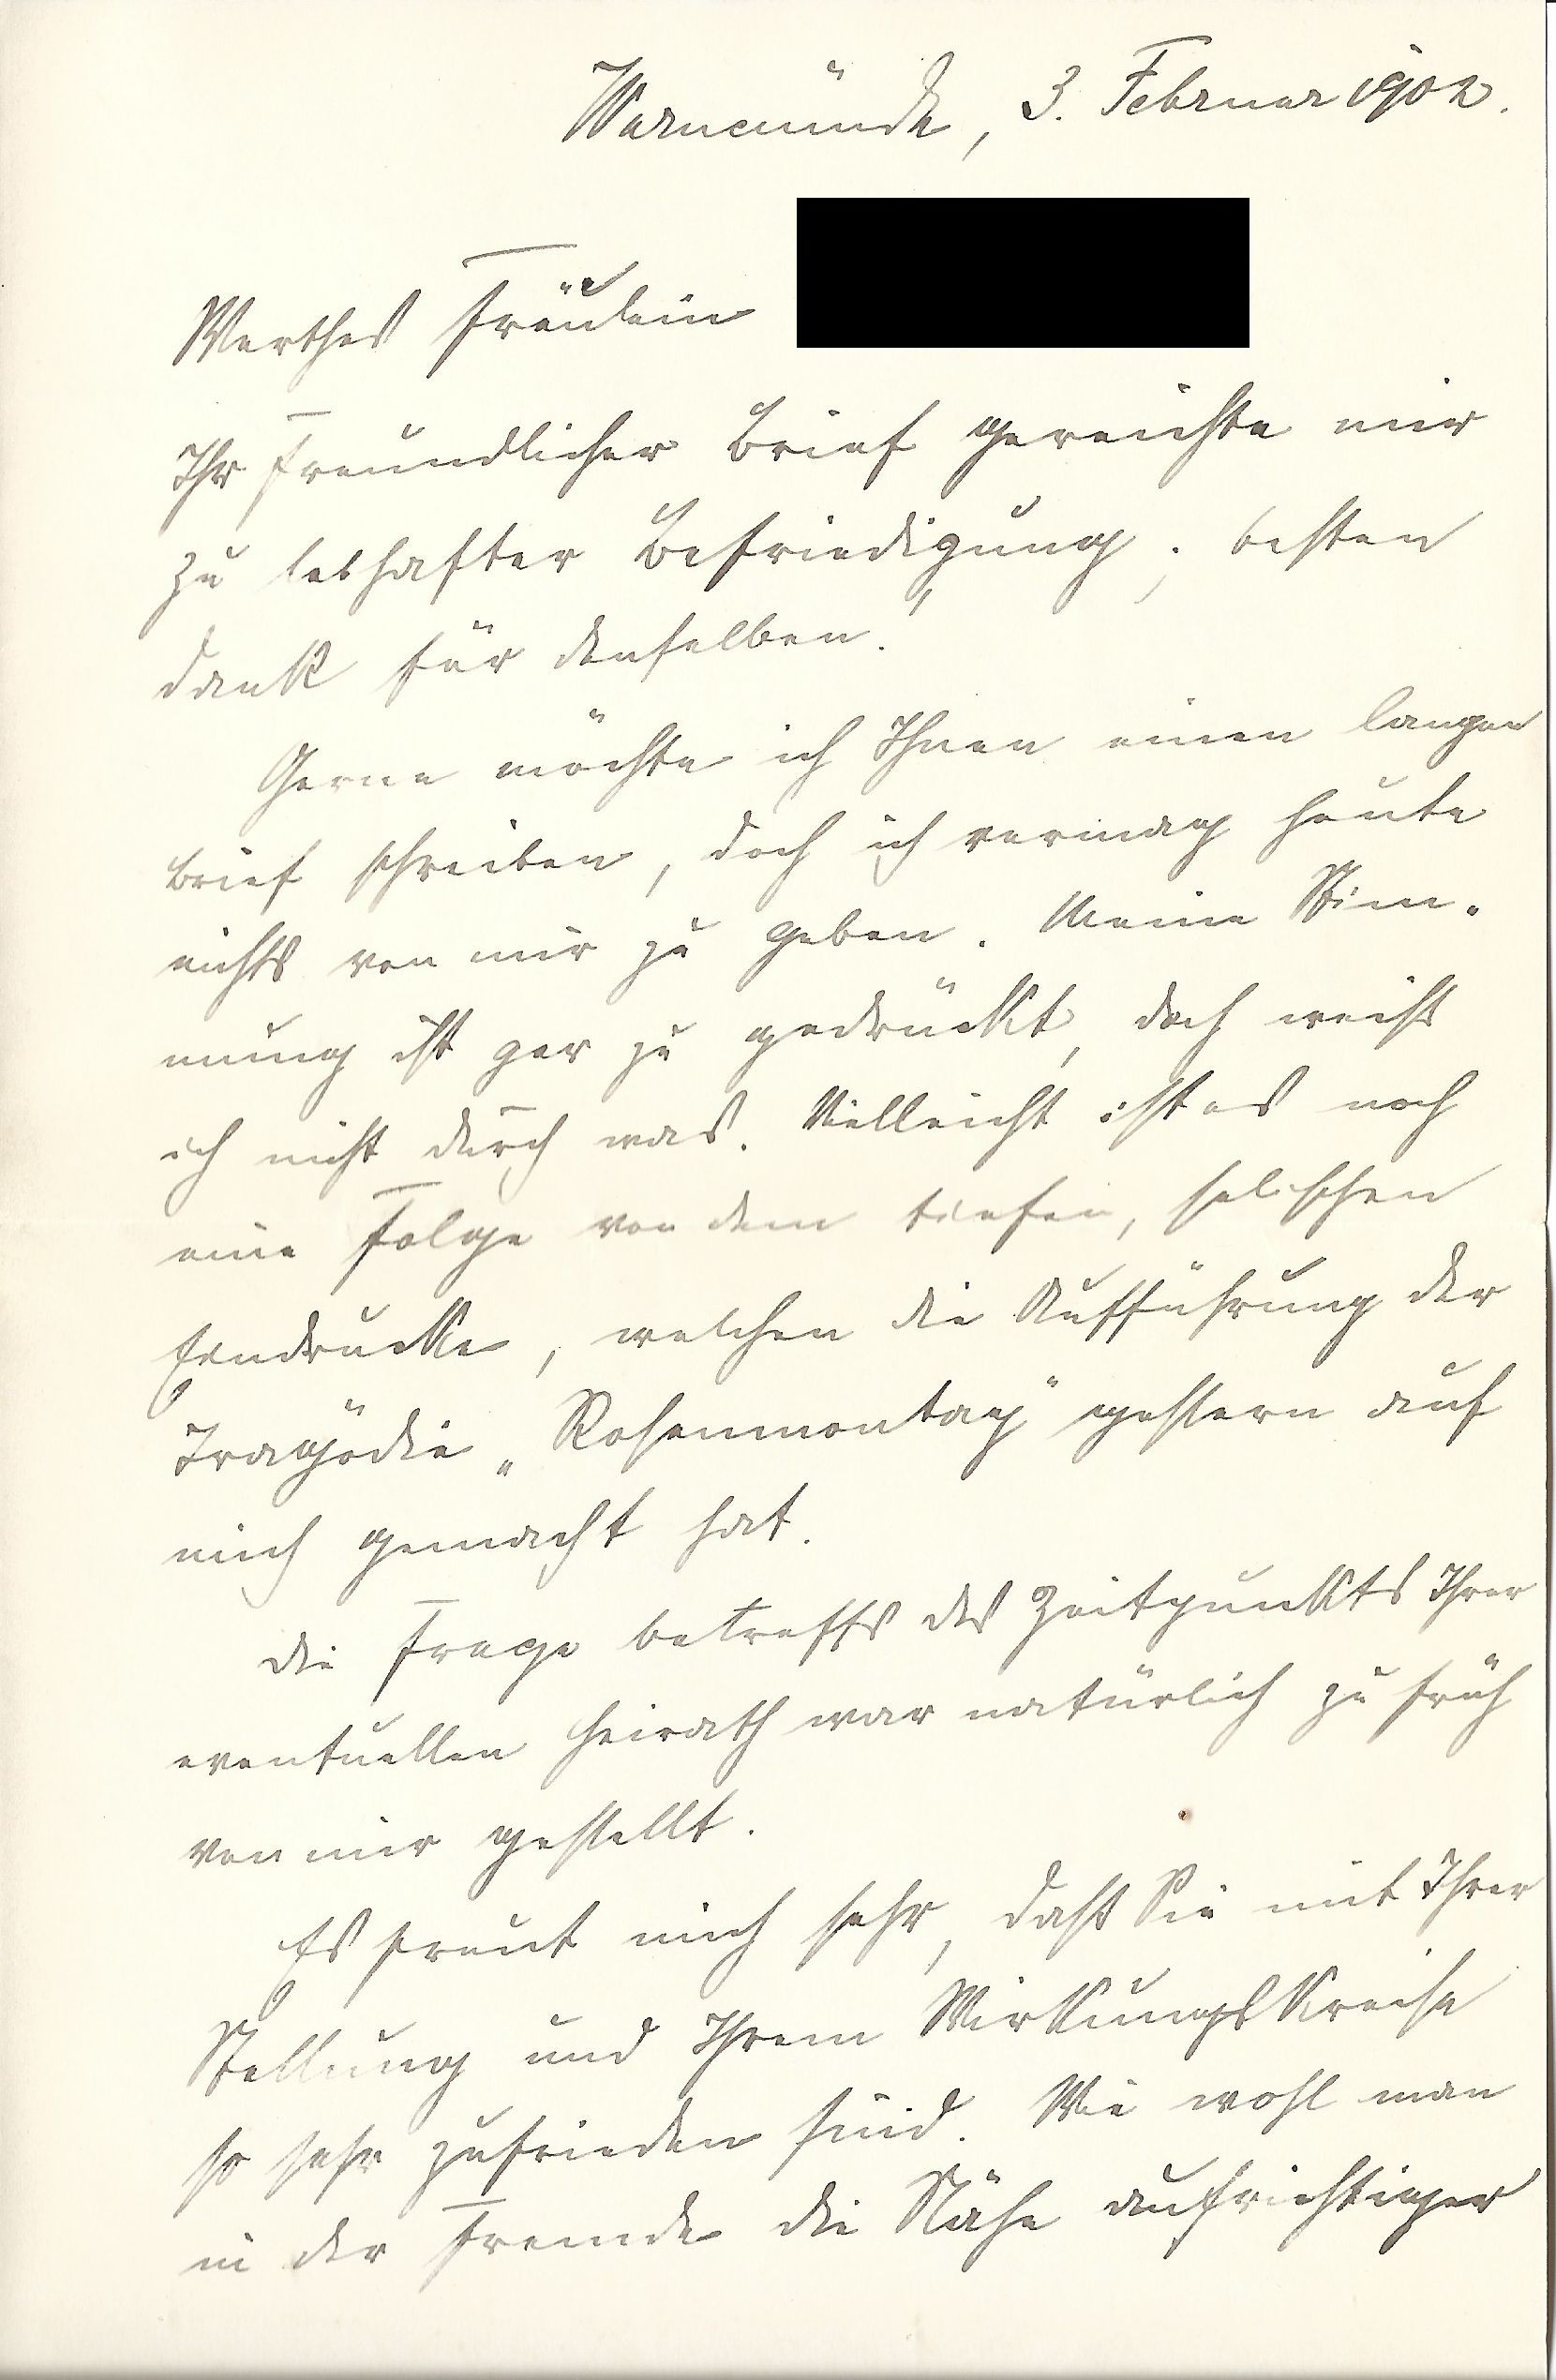 Warnemünde, 3. Februar 1902.
Werthes Fräulein
Ihr freundlicher Brief gereichte mir
zu lebhafter Befriedigung; besten
Dank für denselben.
Gerne möchte ich Ihnen einen langen
Brief schreiben, doch ich vermag heute
nichts von mir zu geben. Meine Stim-
mung ist gar zu gedrückt, doch weiß
ich nicht durch was. Vielleicht ist es noch
eine Folge von dem tiefen, selischen
Eindrucke, welchen die Aufführung der
Tragödie „Rosenmontag" gestern auf
mich gemacht hat.
Die Frage betreffs des Zeitpunkts Ihrer
eventuellen Heirath war natürlich zu früh
von mir gestellt.
Es freut mich sehr, daß Sie mit Ihrer
Stellung und Ihrem Wirkungskreise
so sehr zufrieden sind. Wie wohl man
in der Fremde die Nähe aufrichtiger